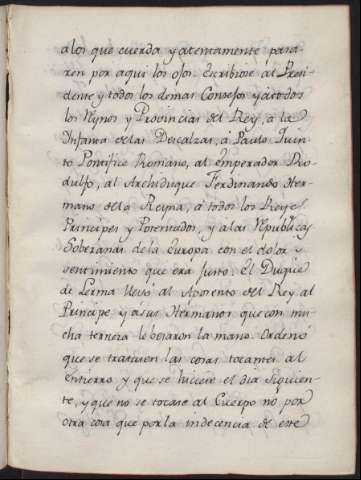 a los que cuerda y atentamente pasa-
ren por aqui los ojos. Escribiose al Presi-
dente y todos los demas Consejos y a todos
los Reynos y Provincias del Rey, a la
Ynfanta de las Descalzas, a Paulo Quin-
to Pontifice Romano, al emperador Ro-
dulfo, al Archiduque Ferdinando Her-
mano de la Reyna, a todos los Reyes
Principes y Potentados, y a las Republicas
Soberanas de la Europa con el dolor y
sentimiento que era justo. El Duque
de Lerma llevó al Aposento del Rey al
Principe y a sus Hermanos que con mu-
cha terneza le besaron la mano. Ordenó
que se tratasen las cosas tocantes al
entierro y que se hiciese el dia siguien-
te, y que no se tocase al Cuerpo no por
otra cosa que por la indecencia de este